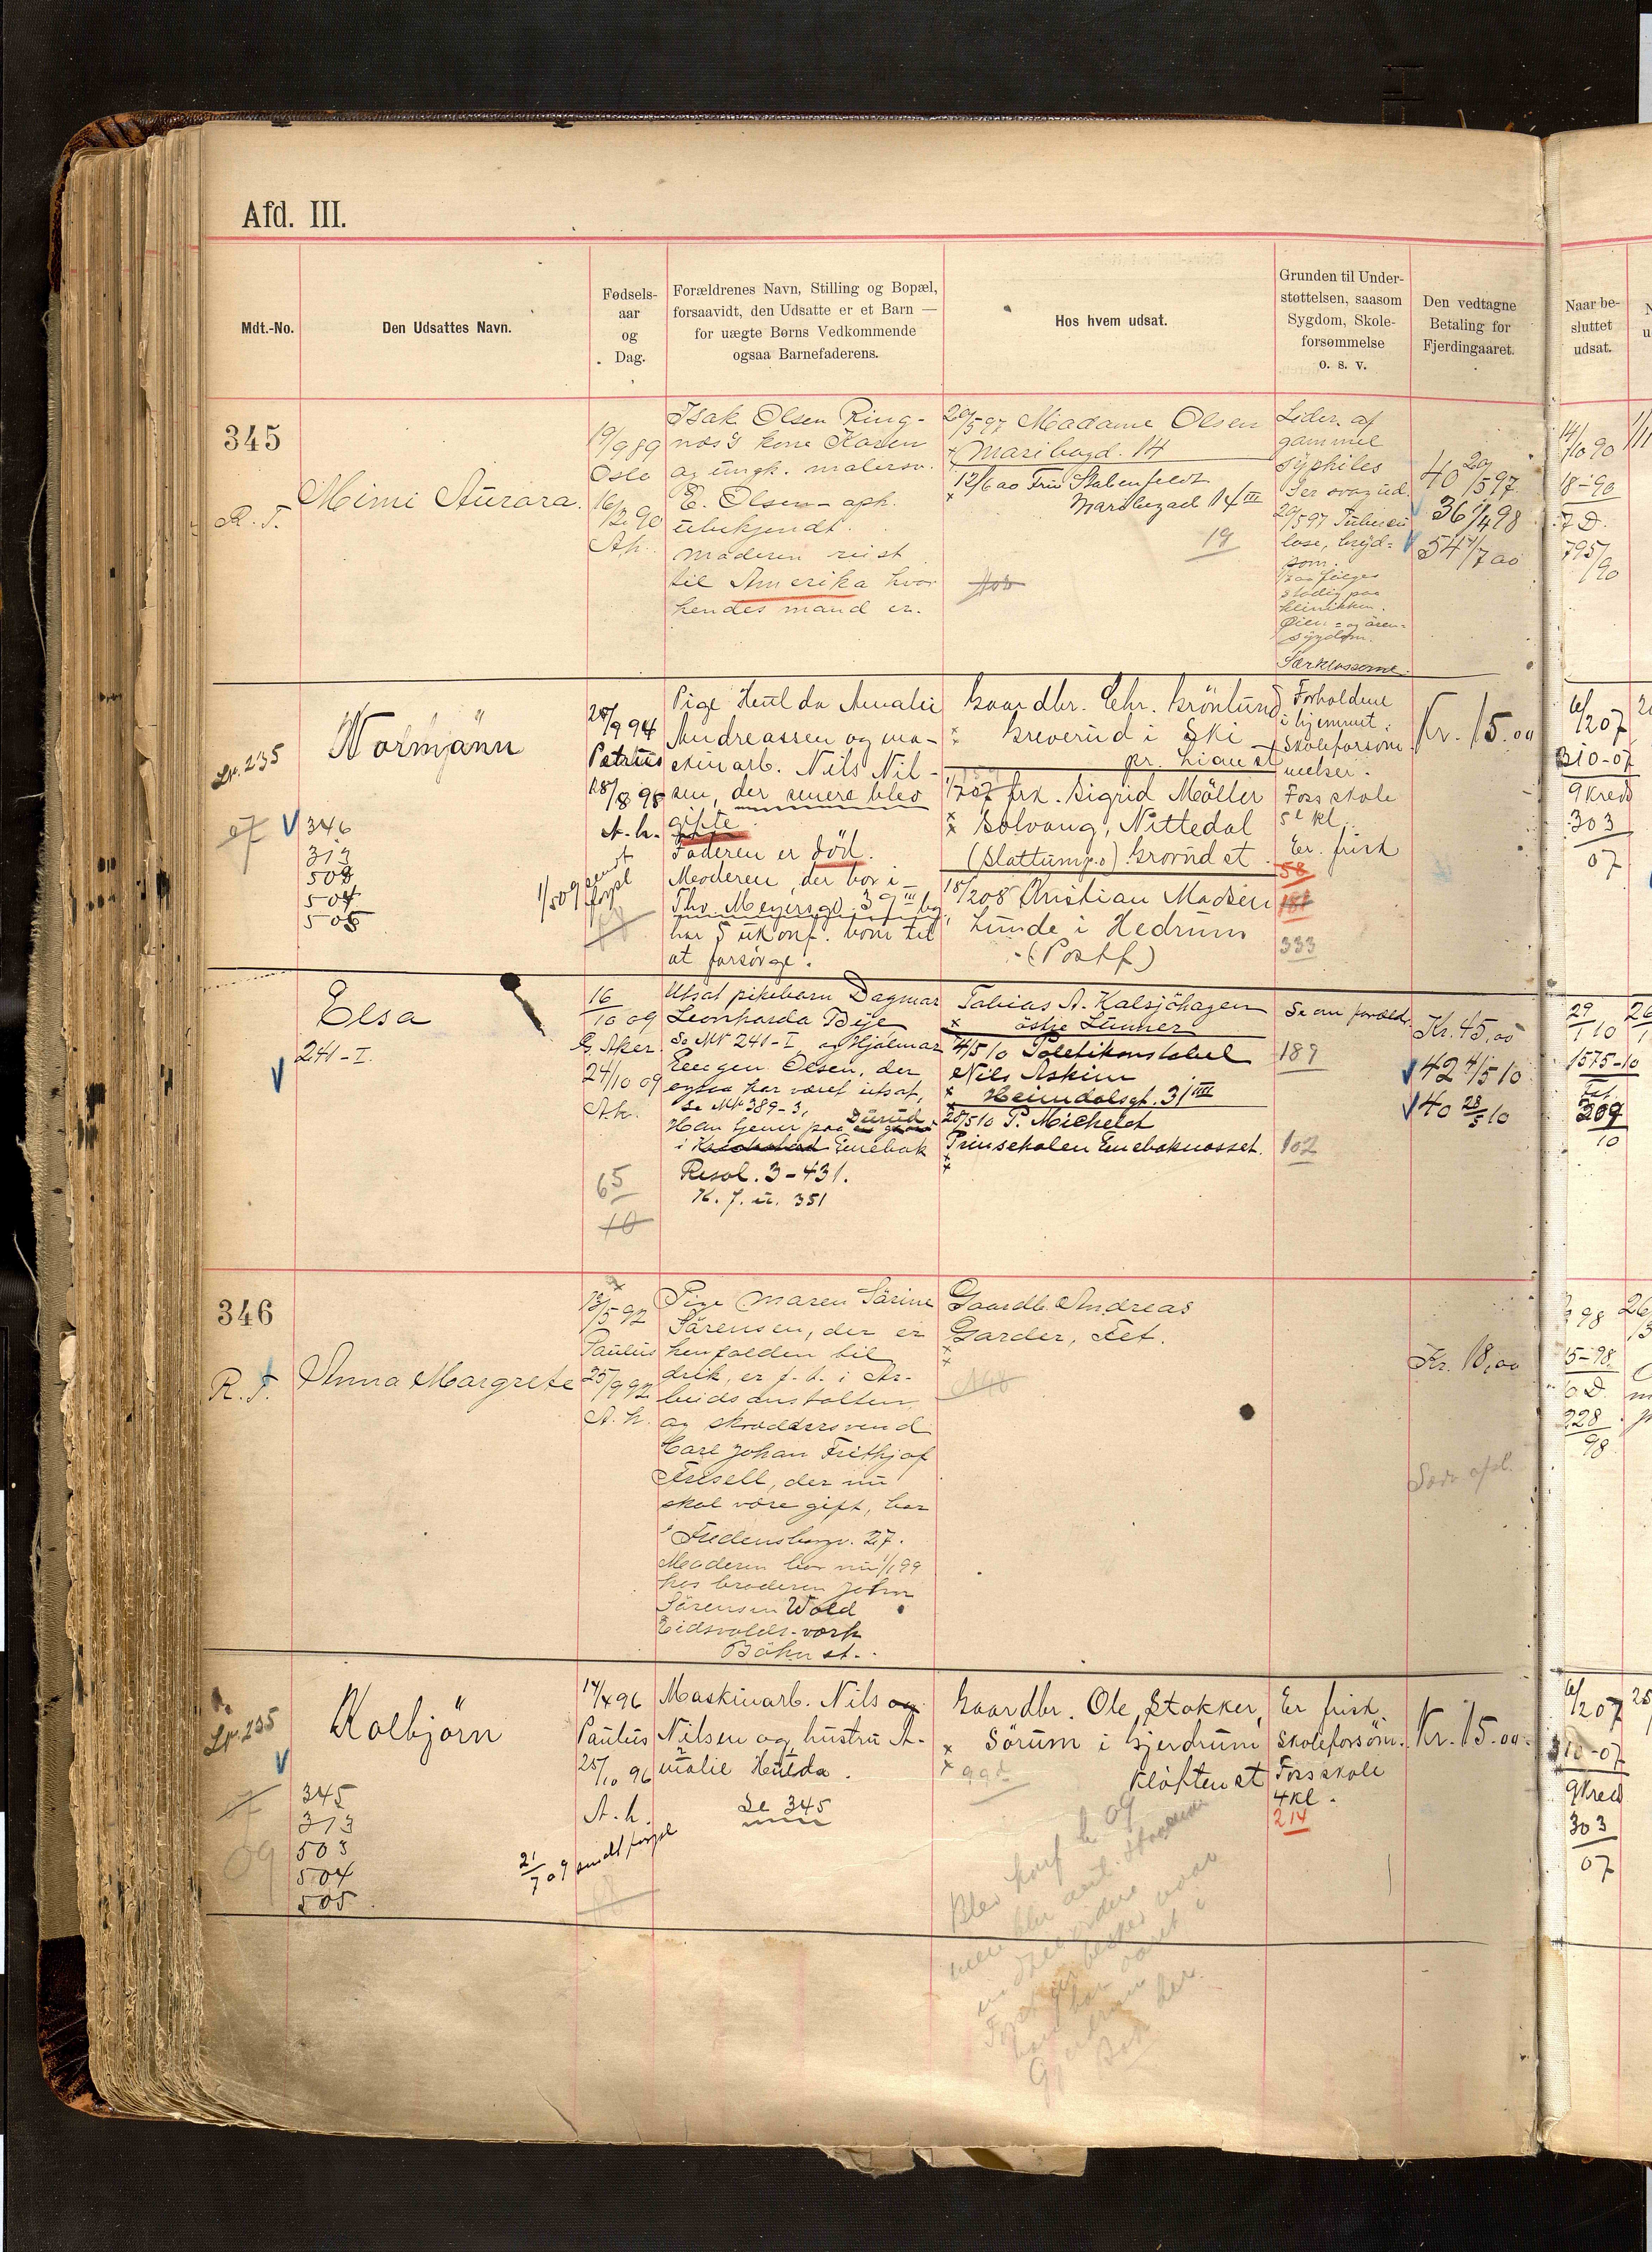 Afd. III.
Mdt.-No.
Den Udsattes Navn.
Fødsels-
aar
og
Dag.
Forældrenes Navn, Stilling og Bopæl,
forsaavidt, den Udsatte er et Barn —
for uægte Børns Vedkommende
ogsaa Barnefaderens.
Hos hvem udsat.
Grunden til Under-
støttelsen, saasom
Sygdom, Skole-
forsømmelse
o. s. v.
Den vedtagne
Betaling for
Fjerdingaaret.
Naar be-
sluttet
udsat.
345
R. T.
Mimi Aurora.
19/9 89
Oslo
16/2 90
A.h.
Isak Olsen Ring-
næs's kone Karen
og ungk. malersv.
E. Olsen - oph.
ubekjendt.
Moderen reist
til Amerika hvor
hendes mand er.
20/5 97 Madame Olsen
Maribogd. 14
12/6 00 Fru Stabenfeldt
Maribogad 14 III
19
Lider af
gammel
syphiles
Ser svag ud.
20/5 97 Tuberku
lose, bryd-
som.
stadig paa
klinikken.
Øien- og ören-
sygdom.
Særklasserne.
40 20/5 97
36 1/4 98
54 1/7 00
14/10 90
18-90
7 D.
795/90
Lp. 235
07
Normann
346
313
503
504
505
28/9 94
Petrus
28/8 98
A.h.
1/5 09 sendt forpl
Pige Hulda Amalie
Andreassen og ma-
skinarb. Nils Nil-
sen, der senere blev
gifte.
Faderen er död.
Moderen, der bor i
Thv. Meyersgd. 39 III bg.
har 5 ukonf. börn til
at forsörge.
Gaardbr. Chr. Grönlund
Greverud i Ski
pr. Lian st
1/7 07 frk. Sigrid Möller
Solvang, Nittedal
(Slattum p.o) Grorud st.
18/2 08 Kristian Madsen
Lunde i Hedrum
(Postf)
Forholdene
i hjemmet.
Skoleforsöm
melser.
Foss skole
5te kl.
Er. frisk
58
181
333
Kr. 15.00
6/2 07
310-07
9 Kred
303
07
Elsa
241-I.
16/10 09
G. Aker.
24/10 09
A.h.
65
10
Utsat pikebarn Dagmar
Leonharda Bye
Se M№ 241-I og Hjalmar
Eeugen Olsen, der
ogsaa har været utsat,
Se M№ 389-3,
Han tjener paa Durud
i Enebak
Resol. 3-431.
K. J. u. 351
Tobias A. Kalsjöhagen
östre Lunner
4/5 10 Politikonstabel
Nils Askim
Heimdalsgt. 31 IIII
28/5 10 P. Michelet
Prinsehalen Enebaknesset.
Se om forældr.
189
102
Kr. 45,00
42 4/5 10
40 28/5 10
29/1 10
1575-10
Fat
209
10
346
R. T.
Anna Margrete
13/5 92
Paulus
25/9 92
A. h.
Pige Maren Sörine
Sörensen, der er
henfalden til
drik, er f. t. i Ar-
beidsanstalten
og skræddersvend
Carl Johan Frithjof
Frisell, der nu
skal være gift, bor
Fredensborgv. 27.
Moderen bor nu 1/1 99
hos broderen John
Sörensen Wold
Eidsvolds-værk
Böhn st.
Gaardb. Andreas
Garder, Fet.
Kr. 18,00
98
15-98
6 D.
228
98
Lp. 235
07
09
Kolbjörn
345
313
503
504
505
14/4 96
Paulus
25/10 96
A. h.
21/7 09 sendt forpl
Maskinarb. Nils
Nilsen og hustru A-
malie Hulda.
Se 345
Gaardbr. Ole Stokker,
Sörum i Gjerdrum
Klöften st
Blev konf h 09
Er frisk
Skoleforsöm.
Foss skole
4 kl.
214
Kr. 15.00.
6/2 07
310-07
9 Kred
303
07